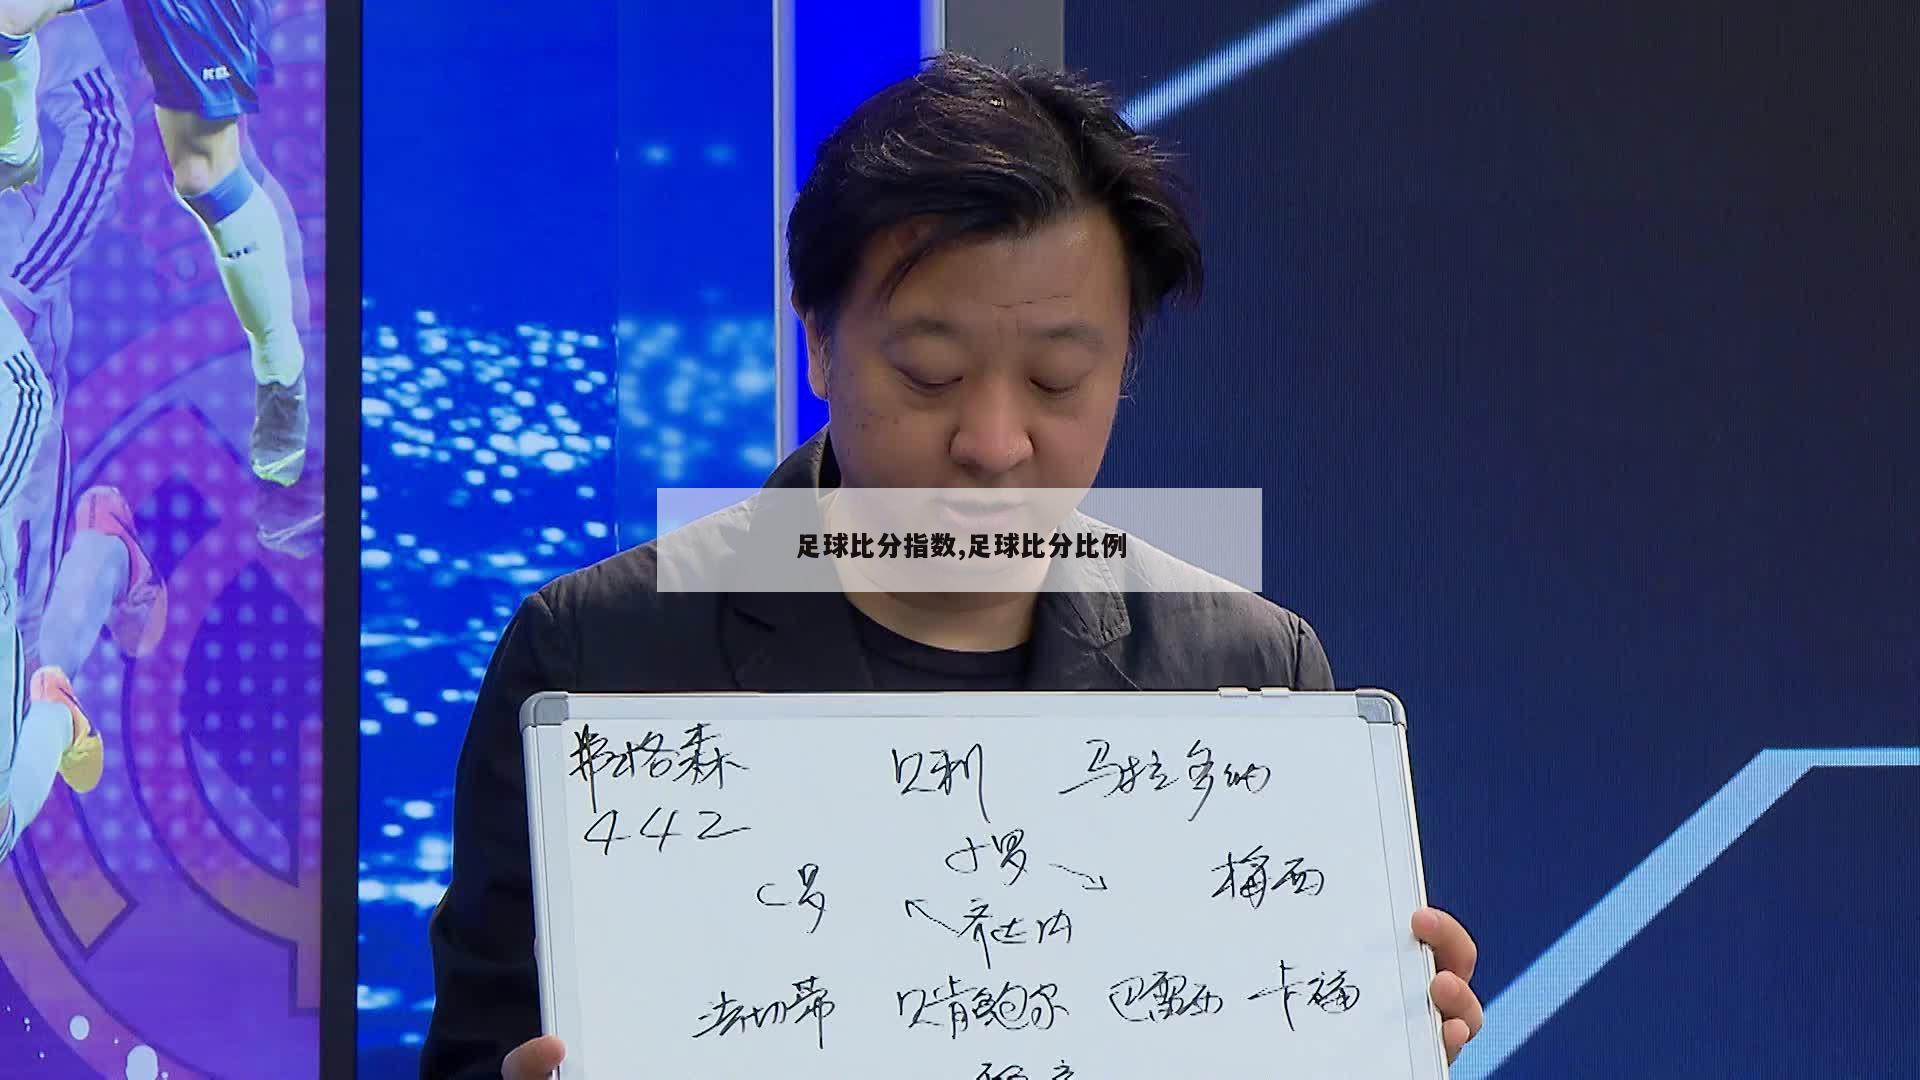 足球比分指数,足球比分比例
弗格森 贝利 马拉多纳
442
小罗
C罗 梅西
齐达内
法切蒂 贝肯鲍尔 巴雷西 卡福